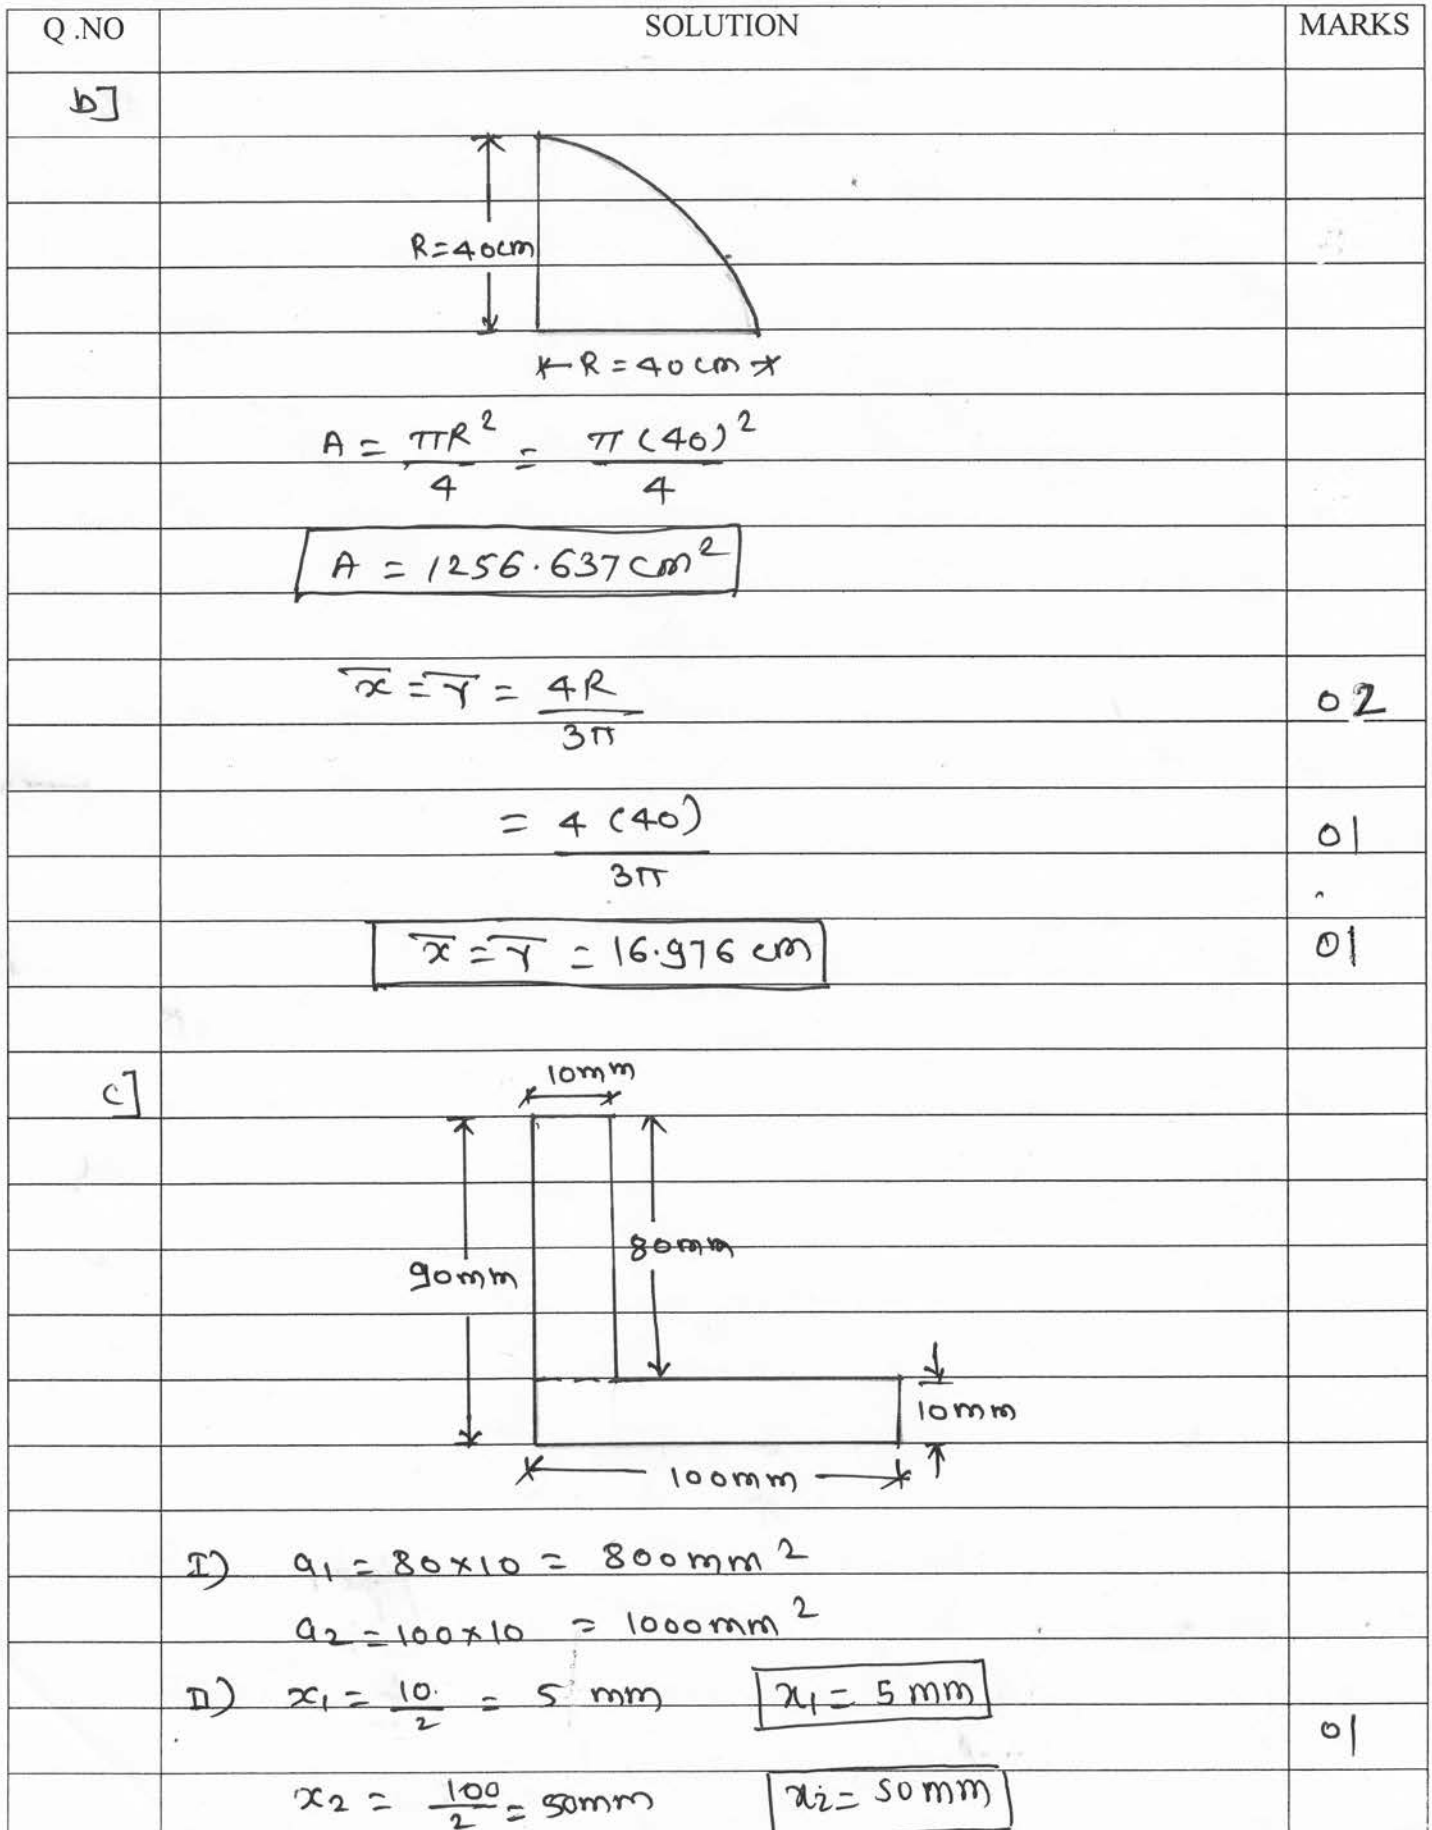 Q .NO SOLUTION MARKS
b]
R=40cm
R = 40 cm
A = πR² / 4 = π (40)² / 4
A = 1256.637 cm²
x̅ = Y̅ = 4R / 3π 02
= 4 (40) / 3π 01
x̅ = Y̅ = 16.976 cm 01
c]
10mm
80mm
90mm
10mm
100mm
I) a₁ = 80×10 = 800mm²
a₂ = 100×10 = 1000mm²
II) x₁ = 10 / 2 = 5 mm x₁ = 5 mm
01
x₂ = 100 / 2 = 50mm x₂ = 50 mm